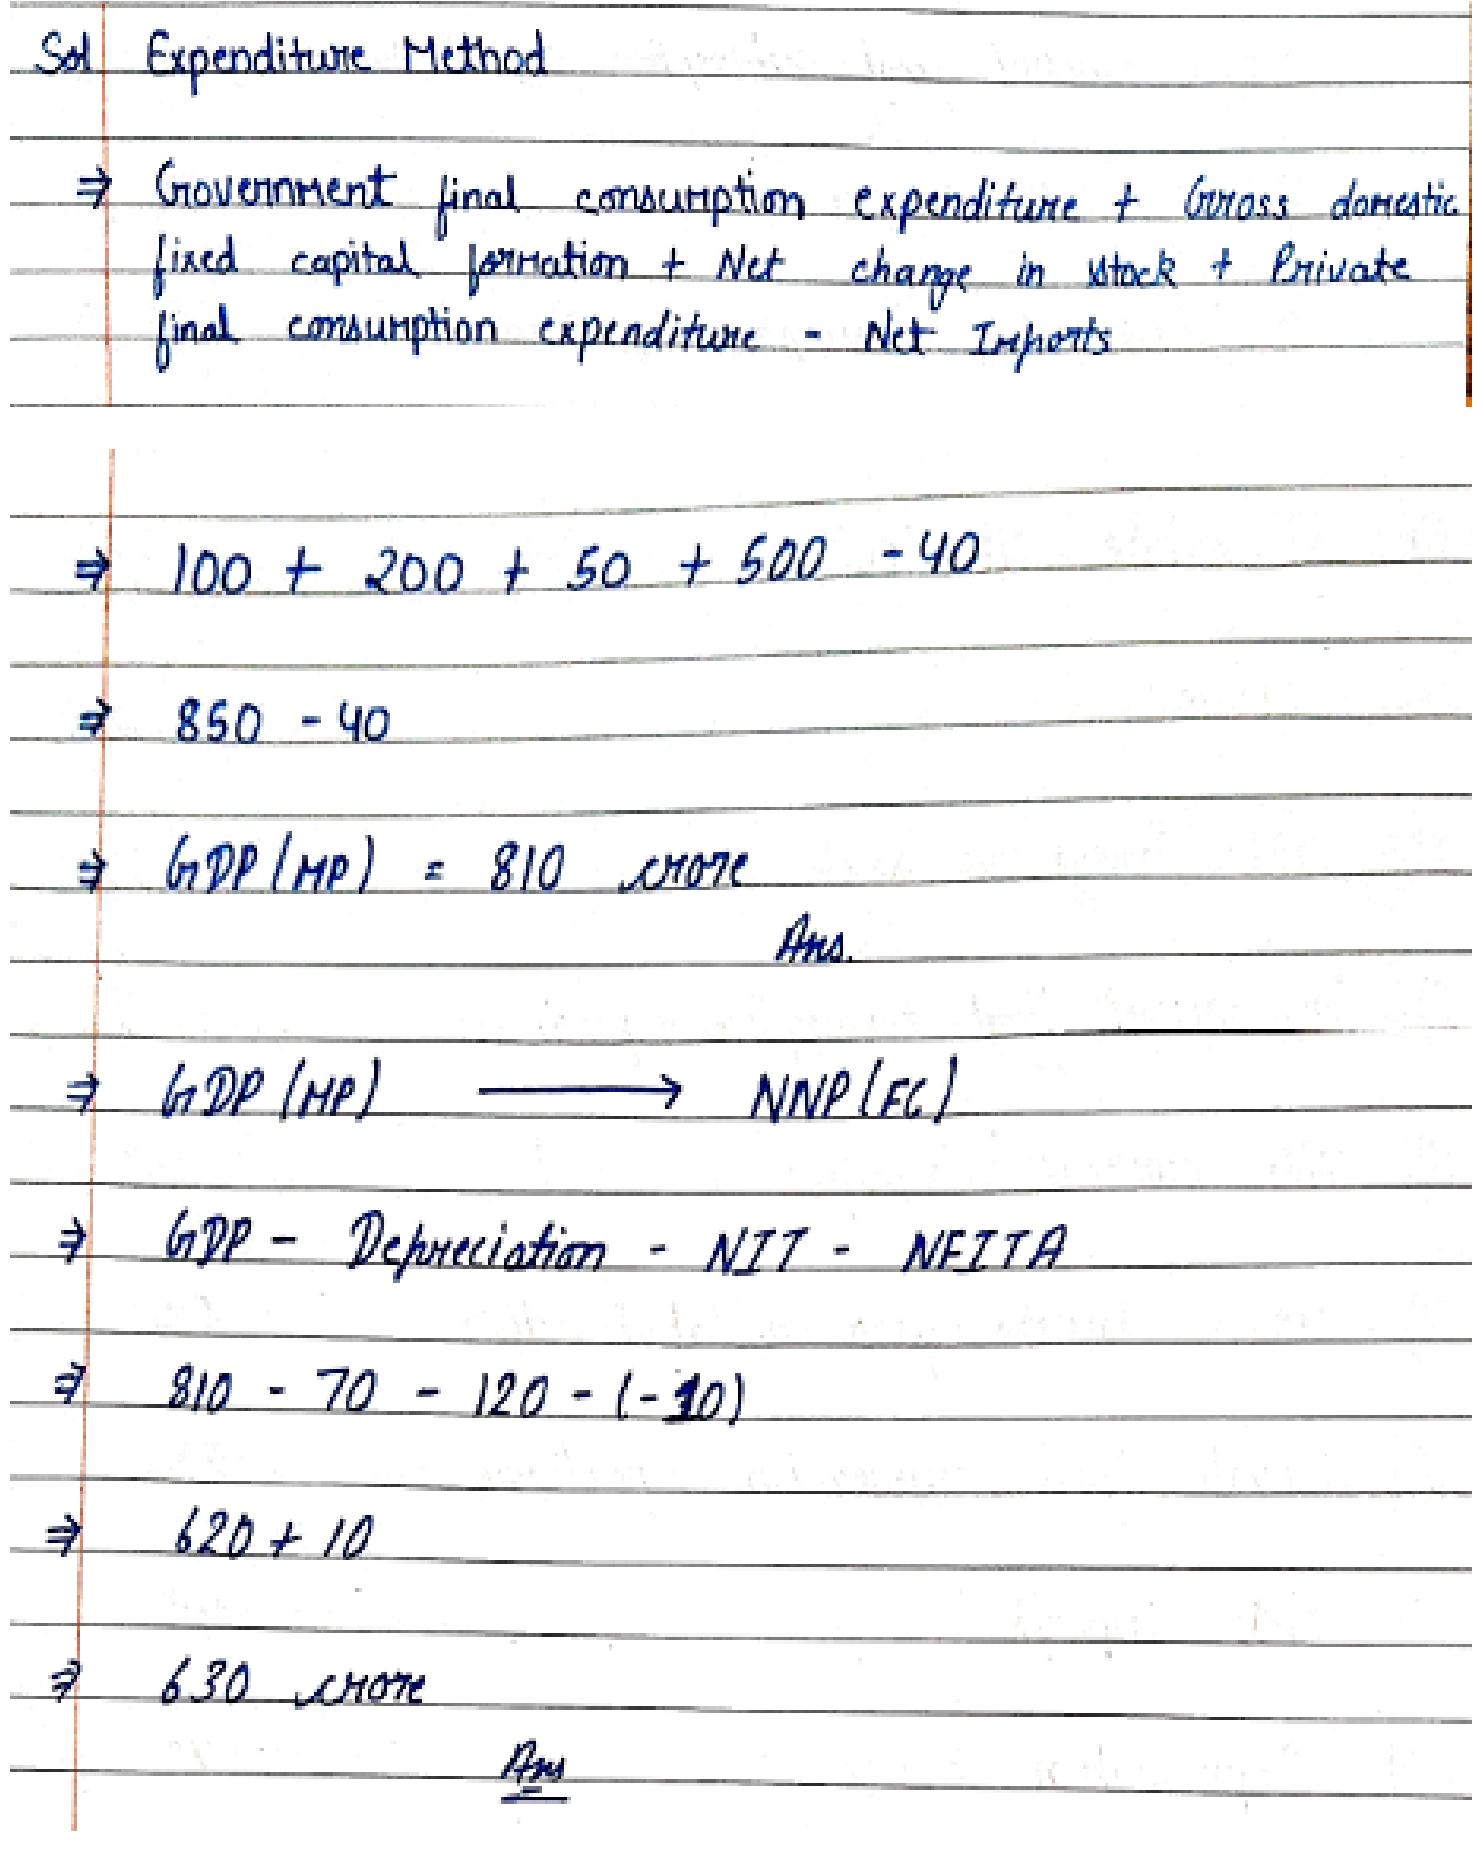 Sol Expenditure Method
⇒ Government final consumption expenditure + Gross domestic
fixed capital formation + Net change in stock + Private
final consumption expenditure - Net Imports
⇒ 100 + 200 + 50 + 500 - 40
⇒ 850 - 40
⇒ GDP (MP) = 810 crore
Ans.
⇒ GDP (MP) → NNP (FC)
⇒ GDP - Depreciation - NIT - NFITA
⇒ 810 - 70 - 120 - (-10)
⇒ 620 + 10
⇒ 630 crore
Ans